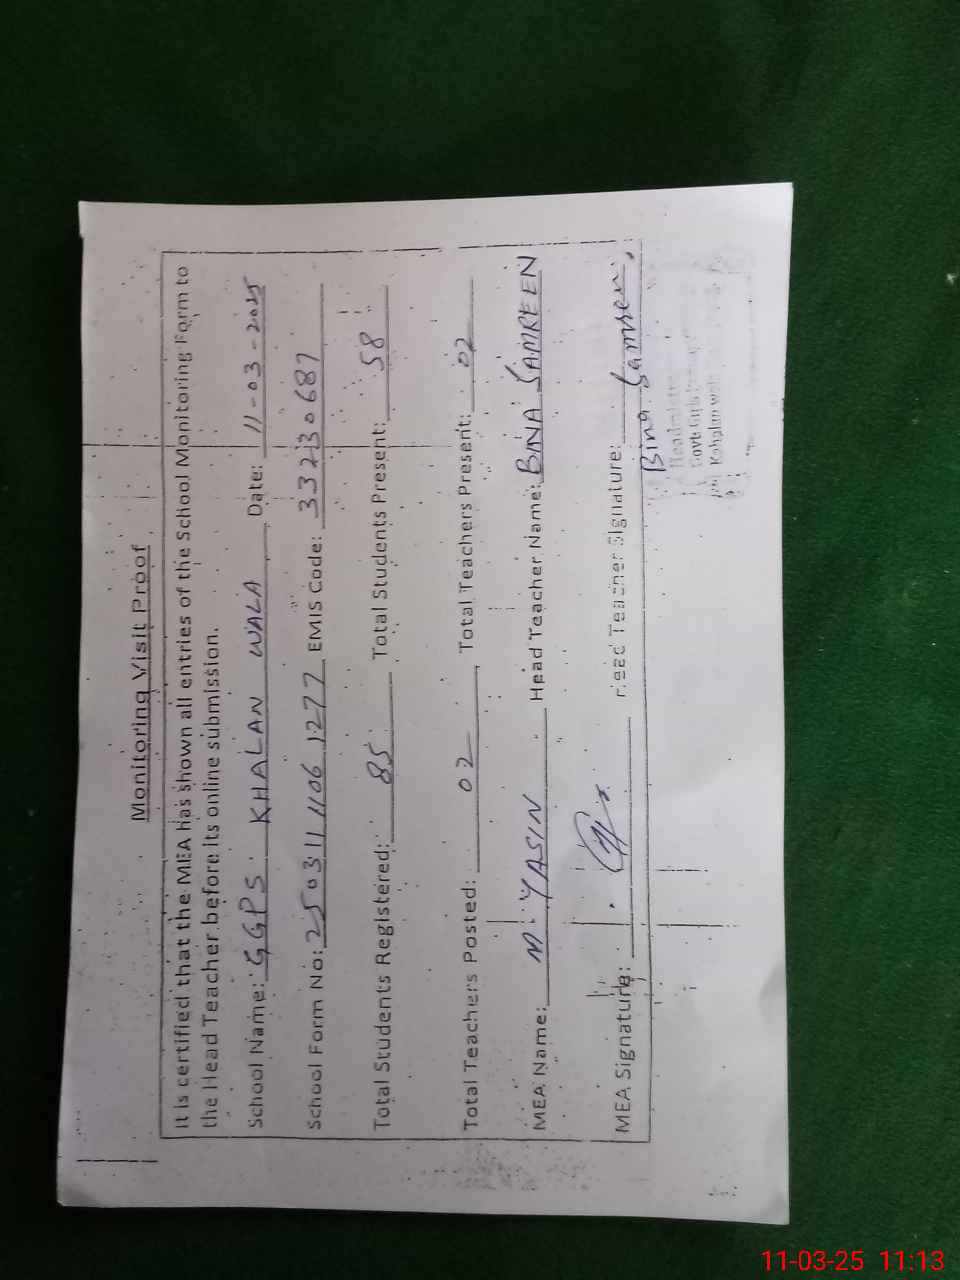 Monitoring Visit Proof
It is certified that the MEA has shown all entries of the School Monitoring Form to
the Head Teacher before its online submission.
School Name: GGPS KHALAN WALA Date: 11-03-2025
School Form No: 2503111061277 EMIS Code: 33230687
Total Students Registered: 85 Total Students Present: 58
Total Teachers Posted: 02 Total Teachers Present: 02
MEA Name: M. YASIN Head Teacher Name: BINA SAMREEN
MEA Signature: Head Teacher Signature:
Bina Samreen
Govt Girls
11-03-25 11:13